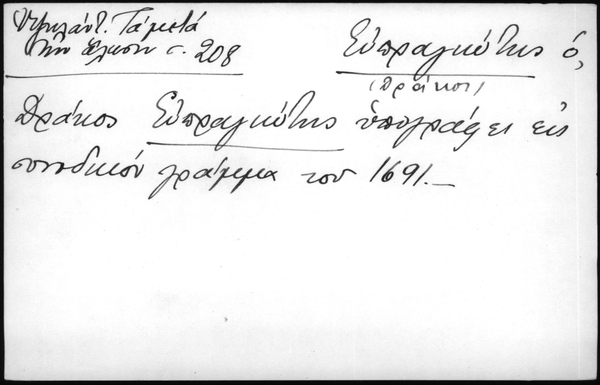 Ὑψηλάντ. Τὰ μετὰ
τὴν ἅλωσιν σ. 208
Εὐπραγιώτης ὁ,
(Δράκος)
Δράκος Εὐπραγιώτης ὑπογράφει εἰς
συνοδικόν γράμμα του 1691.—